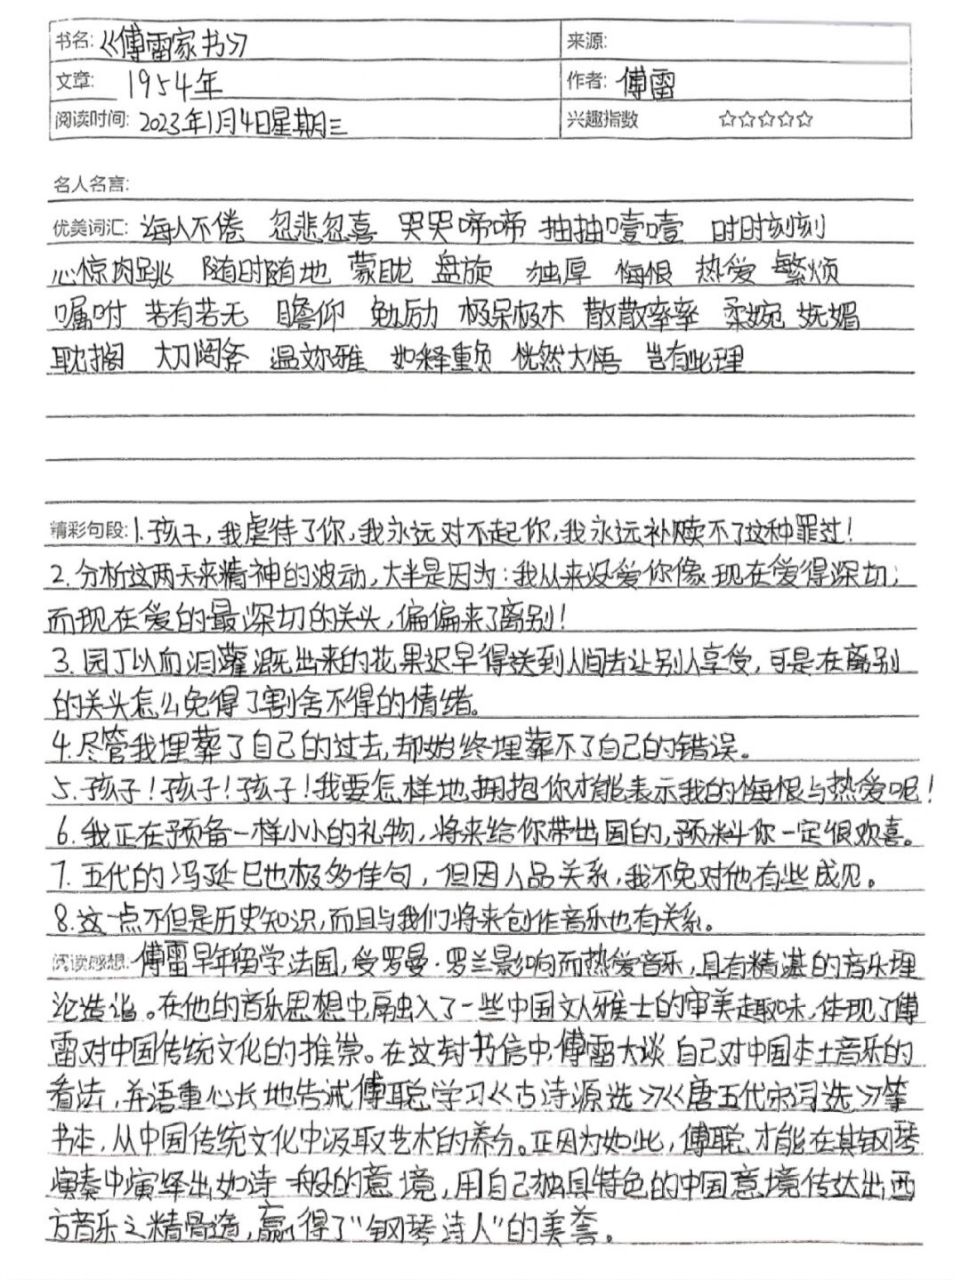 书名:《傅雷家书》 来源:
文章: 1954年 作者: 傅雷
阅读时间: 2023年1月4日星期三 兴趣指数 ☆☆☆☆☆
名人名言:
优美词汇: 海人不倦 忽悲忽喜 哭哭啼啼 抽抽噎噎 时时刻刻
心惊肉跳 随时随地 蒙眬 盘旋 独厚 悔恨 热爱 繁烦
嘱咐 若有若无 瞻仰 勉励 极呆极木 散散率率 柔婉 妩媚
耽搁 大刀阔斧 温文尔雅 如释重负 恍然大悟 岂有此理
精彩句段: 1.孩子，我虐待了你，我永远对不起你，我永远补赎不了这种罪过！
2.分析这两天来精神的波动，大半是因为：我从来没爱你像现在爱得深切；
而现在爱的最深切的关头，偏偏来了离别！
3.园丁以血泪灌溉出来的花果迟早得送到人间去让别人享受，可是在离别
的关头怎么免得了割舍不得的情绪。
4.尽管我埋葬了自己的过去，却始终埋葬不了自己的错误。
5.孩子！孩子！孩子！我要怎样地拥抱你才能表示我的悔恨与热爱呢！
6.我正在预备一样小小的礼物，将来给你带出国的，预料你一定很欢喜。
7.五代的冯延巳也极多佳句，但因人品关系，我不免对他有些成见。
8.这一点不但是历史知识，而且与我们将来创作音乐也有关系。
阅读感想: 傅雷早年留学法国，受罗曼·罗兰影响而热爱音乐，具有精湛的音乐理
论造诣。在他的音乐思想中扇出入了一些中国文人雅士的审美趣味，体现了傅
雷对中国传统文化的推崇。在这封书信中，傅雷大谈自己对中国本土音乐的
看法，并语重心长地告诫傅聪学习《古诗源选》《唐五代宋词选》等
书本，从中国传统文化中汲取艺术的养分。正因为如此，傅聪才能在其钢琴
演奏中演绎出如诗一般的意境，用自己独具特色的中国意境传达出西
方音乐之精骨遒，赢得了“钢琴诗人”的美誉。